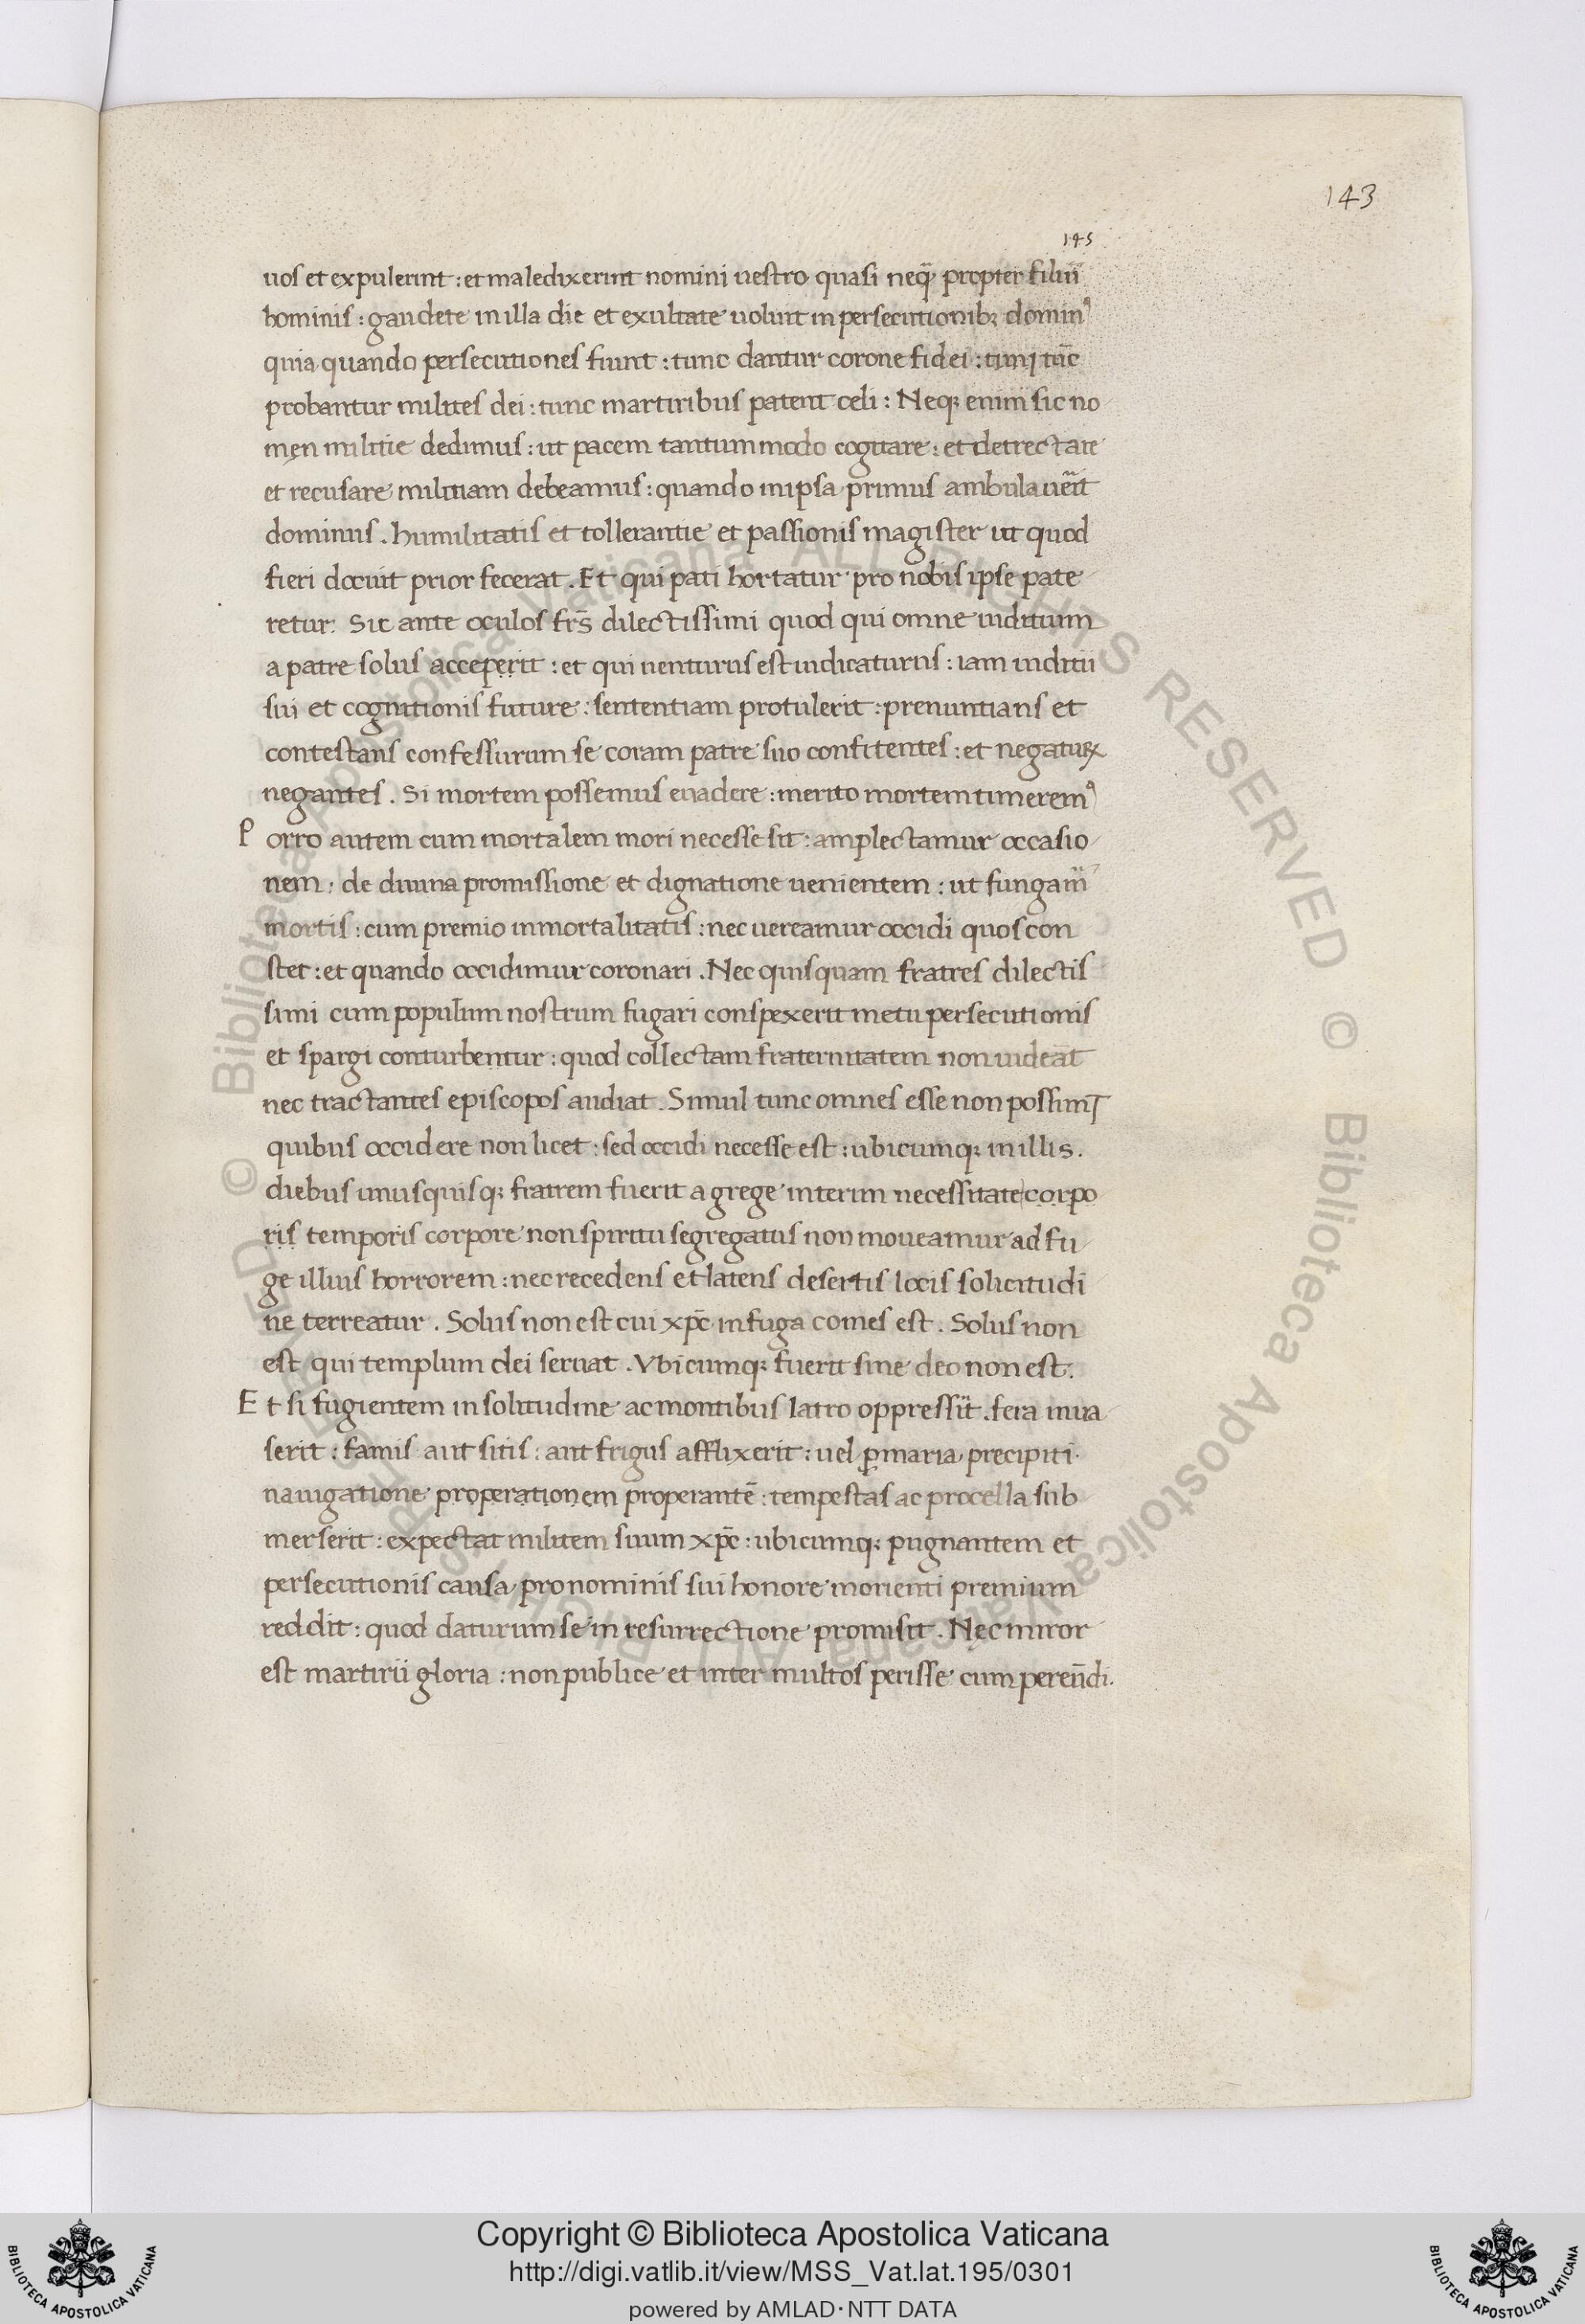 143
145
uos et expulerint : et maledixerint nomini uestro quasi neq̃ propter filiũ
hominis : gaudete in illa die et exultate uoluit in persecutionibꝫ dominꝰ
quia quando persecutiones fiunt : tunc dantur corone fidei : tunc tũc
probantur milites dei : tunc martiribus patent celi : Neqꝫ enim sic no
men militie dedimus : ut pacem tantummodo cogitare : et detrectare
et recusare militiam debeamus : quando in ipsa primus ambulauẽit
dominus . humilitatis et tollerantie et passionis magister ut quod
fieri docuit prior fecerat . Et qui pati hortatur pro nobis ipse pate
retur. Sit ante oculos frs̃ dilectissimi quod qui omne iuditium
a patre solus acceperit : et qui uenturus est iudicaturus : iam iuditii
sui et cognitionis future : sententiam protulerit : prenuntians et
contestans confessurum se coram patre suo confitentes : et negaturꝝ
negantes . Si mortem possemus euadere : merito mortem timeremꝰ
Porro autem cum mortalem mori necesse sit : amplectamur occasio
nem : de diuina promissione et dignatione uenientem : ut fungam̃
mortis : cum premio inmortalitatis : nec uereamur occidi quos con
stet : et quando occidimur coronari . Nec quisquam fratres dilectis
simi cum populum nostrum fugari conspexerit metu persecutionis
et spargi conturbentur : quod collectam fraternitatem non uideãt
nec tractantes episcopos audiat . Simul tunc omnes esse non possunt
quibus occidere non licet : sed occidi necesse est : ubicumqꝫ in illis .
diebus unusquisqꝫ fratrem fuerit a grege interim necessitate corpo
ris temporis corpore non spiritu segregatus non moueamur ad fu
ge illius horrorem : nec recedens et latens desertis locis solicitudi
ne terreatur . Solus non est cui xp̃c in fuga comes est . Solus non
est qui templum dei seruat . Vbicumqꝫ fuerit sine deo non est .
Et si fugientem in solitudine ac montibus latro oppressit̃ . fera inua
serit : famis aut sitis : aut frigus afflixerit : uel ꝑ maria precipiti
nauigatione properationem properantẽ : tempestas ac procella sub
merserit : expectat militem suum xp̃c : ubicumqꝫ pugnantem et
persecutionis causa pro nominis sui honore morienti premium
reddit : quod daturum se in resurrectione promisit . Nec minor
est martirii gloria : non publice et inter multos perisse cum pereũdi .
© Biblioteca Apostolica Vaticana ALL RIGHTS RESERVED
Copyright © Biblioteca Apostolica Vaticana
http://digi.vatlib.it/view/MSS_Vat.lat.195/0301
powered by AMLAD·NTT DATA
BIBLIOTECA APOSTOLICA VATICANA
BIBLIOTECA APOSTOLICA VATICANA